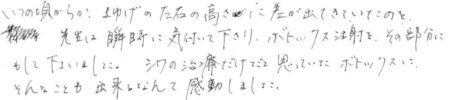 いつの頃からか、まゆげの左右の高さに差が出てきていたのを、
先生は瞬時に気付いて下さり、ボトックス注射を、その部分に
もして下さいました。シワの治療だけだと思っていたボトックスに、
そんなことも出来るなんて感動しました。